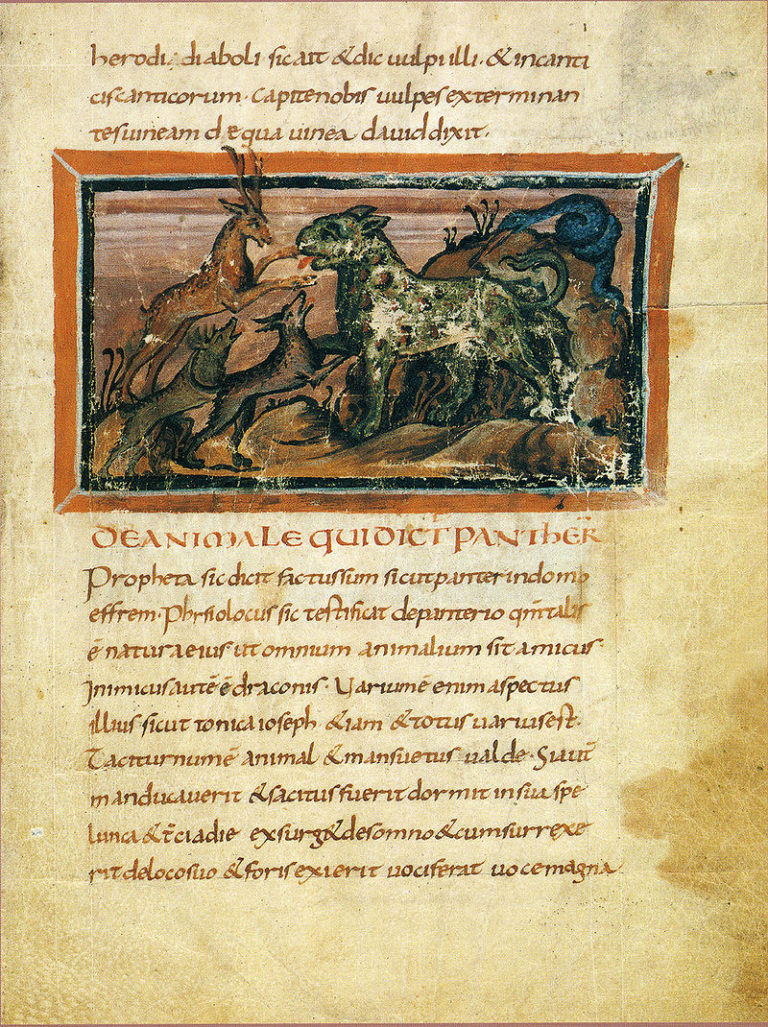 herodi diaboli sic ait & dic uulpi illi · & in canti
ciscanticorum · Capite nobis uulpes exterminan
tes uineam de qua uinea dauid dixit ·
DE ANIMALE QUI DICT PANTHER
Propheta sic dicit factus sum sicut panter in domo
effrem · Phisiolocus sic testificat de panterio qm talis
ē natura eius ut omnium animalium sit amicus ·
Inimicus autē ē draconis · Uarium ē enim aspectus
illius sicut tonica ioseph & iam & totus uarius est ·
Taciturnum ē animal & mansuetus ualde · Si aut̄
manducauerit & sacitus fuerit dormit in sua spe
lunca & t̄ciadie exsurg& de somno & cum surrexe
rit de loco suo & foris exierit uociferat uoce magna